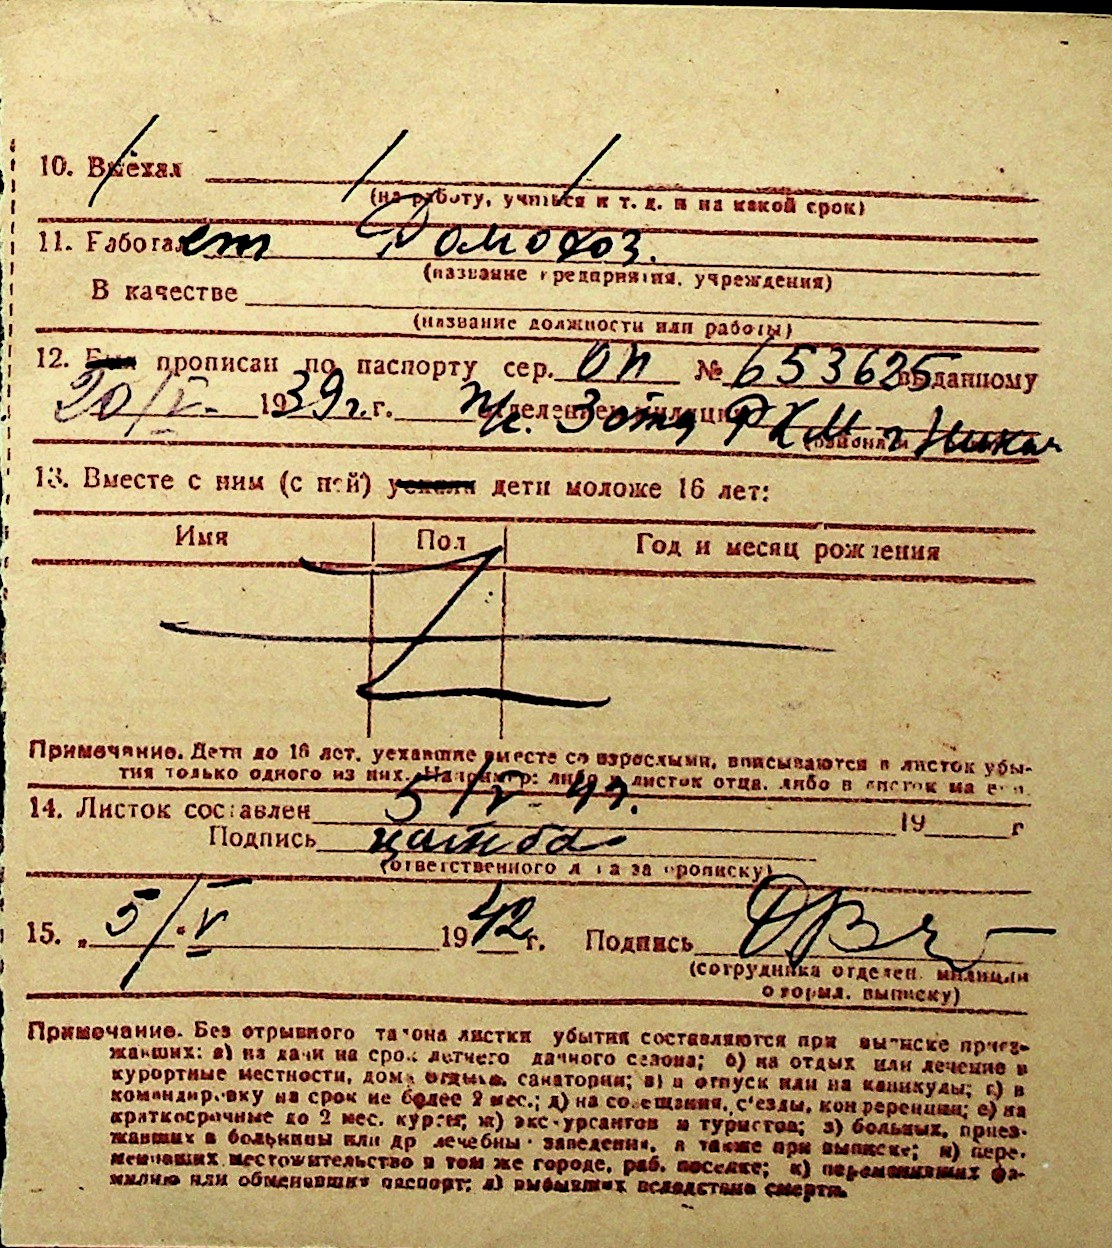 10. Выехал
(на работу, учиться и т. д. и на какой срок)
11. Работает Домохоз.
(название предприятия, учреждения)
В качестве
(название должности или работы)
12. Был прописан по паспорту сер. ОП № 653625 выданному
20/V- 1939г. г. отделением милиции РКМ г
(района)
13. Вместе с ним (с ней) уехали дети моложе 16 лет:
Имя Пол Год и месяц рождения
Примечание. Дети до 16 лет, уехавшие вместе со взрослыми, вписываются в листок убы-
тия только одного из них. Например: либо в листок отца, либо в листок матери.
14. Листок составлен 5/V- 42. 19 г
Подпись
(ответственного лица за прописку)
15. „5/“ V 1942г. Подпись
(сотрудника отделен. милиции
оформл. выписку)
Примечание. Без отрывного талона листки убытия составляются при выписке приез-
жавших: а) на дачи на срок летнего дачного сезона; б) на отдых или лечение в
курортные местности, дома отдыха, санатории; в) в отпуск или на каникулы; г) в
командировку на срок не более 2 мес.; д) на совещания, с'езды, конференции; е) на
краткосрочные до 2 мес. курсы; ж) экскурсантов и туристов; з) больных, приез-
жавших в больницы или др лечебны заведения, а также при выписке; и) пере-
менивших местожительство в том же городе, раб. поселке; к) переменивших фа-
милию или обменявших паспорт; л) выбывших вследствие смерти.